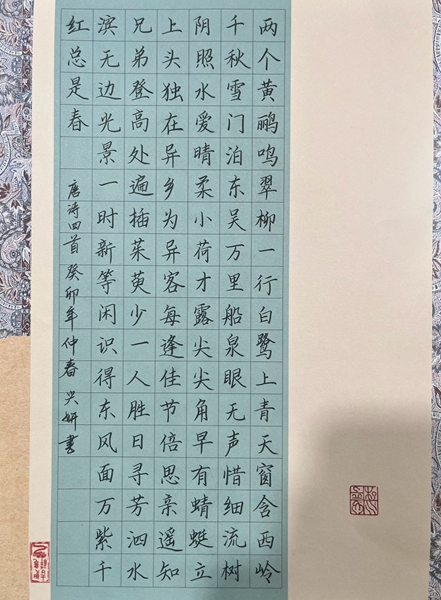 两个黄鹂鸣翠柳一行白鹭上青天窗含西岭
千秋雪门泊东吴万里船泉眼无声惜细流树
阴照水爱晴柔小荷才露尖尖角早有蜻蜓立
上头独在异乡为异客每逢佳节倍思亲遥知
兄弟登高处遍插茱萸少一人胜日寻芳泗水
滨无边光景一时新等闲识得东风面万紫千
红总是春
唐诗四首癸卯年仲春吴妍书